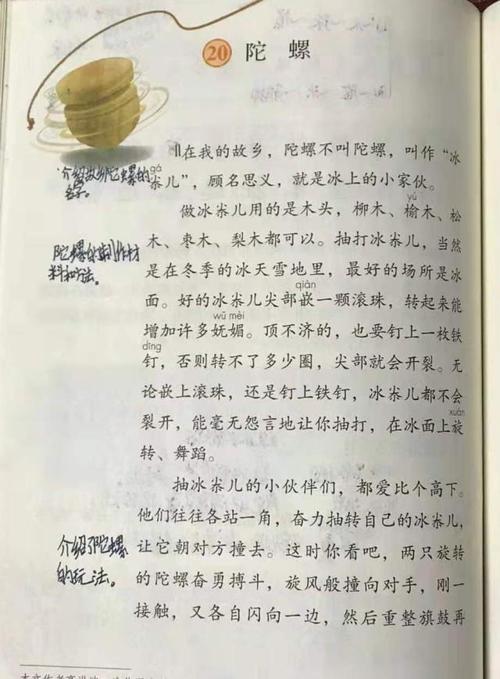 20 陀螺
在我的故乡，陀螺不叫陀螺，叫作“冰
gá
尜儿”，顾名思义，就是冰上的小家伙。
yú
做冰尜儿用的是木头，柳木、榆木、松
木、枣木、梨木都可以。抽打冰尜儿，当然
是在冬季的冰天雪地里，最好的场所是冰
qiàn
面。好的冰尜儿尖部嵌一颗滚珠，转起来能
wǔ mèi
增加许多妩媚。顶不济的，也要钉上一枚铁
dīng
钉，否则转不了多少圈，尖部就会开裂。无
论嵌上滚珠，还是钉上铁钉，冰尜儿都不会
xuán
裂开，能毫无怨言地让你抽打，在冰面上旋
转、舞蹈。
抽冰尜儿的小伙伴们，都爱比个高下。
他们往往各站一角，奋力抽转自己的冰尜儿，
让它朝对方撞去。这时你看吧，两只旋转
的陀螺奋勇搏斗，旋风般撞向对手，刚一
接触，又各自闪向一边，然后重整旗鼓再
介绍故乡陀螺的
名字。
陀螺的制作材
料和方法。
介绍了陀螺
的玩法。